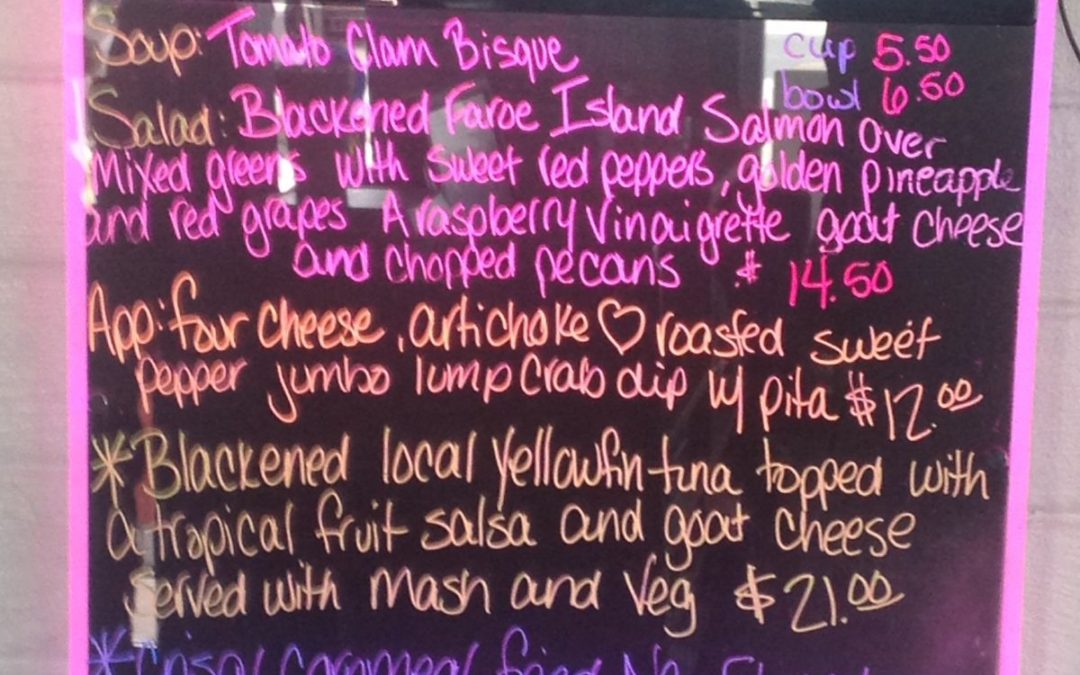 Soup: Tomato Clam Bisque cup 5.50
bowl 6.50
Salad: Blackened Faroe Island Salmon over
Mixed greens with sweet red peppers, golden pineapple
and red grapes A raspberry Vinaigrette goat cheese
and chopped pecans $ 14.50
App: four cheese, artichoke ♡ roasted sweet
pepper jumbo lump crab dip w/ pita $12.00
*Blackened local yellowfin tuna topped with
a tropical fruit salsa and goat cheese
served with mash and veg $21.00